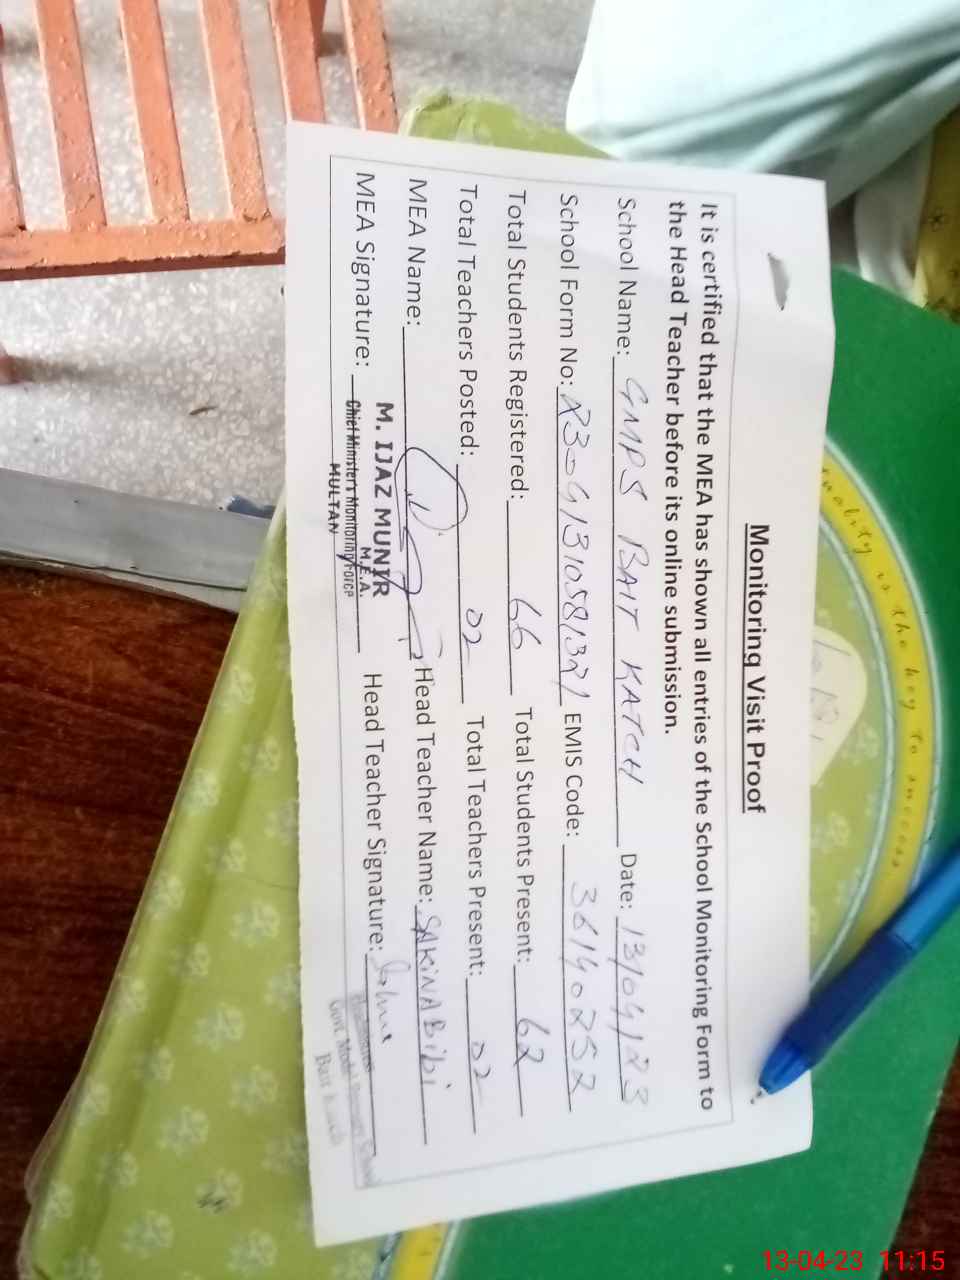 Monitoring Visit Proof
It is certified that the MEA has shown all entries of the School Monitoring Form to
the Head Teacher before its online submission.
School Name: GMPS BAIT KATCH Date: 13/04/23
School Form No: 23-G1310581321 EMIS Code: 36140252
Total Students Registered: 66 Total Students Present: 62
Total Teachers Posted: 02 Total Teachers Present: 02
MEA Name: Head Teacher Name: SAKINA Bibi
MEA Signature: Head Teacher Signature:
M. IJAZ MUNIR
M.E.A.
Chief Minister's Monitoring Force
MULTAN
Govt. Model Primary School
Bait Katch
is the key to success
13-04-23 11:15